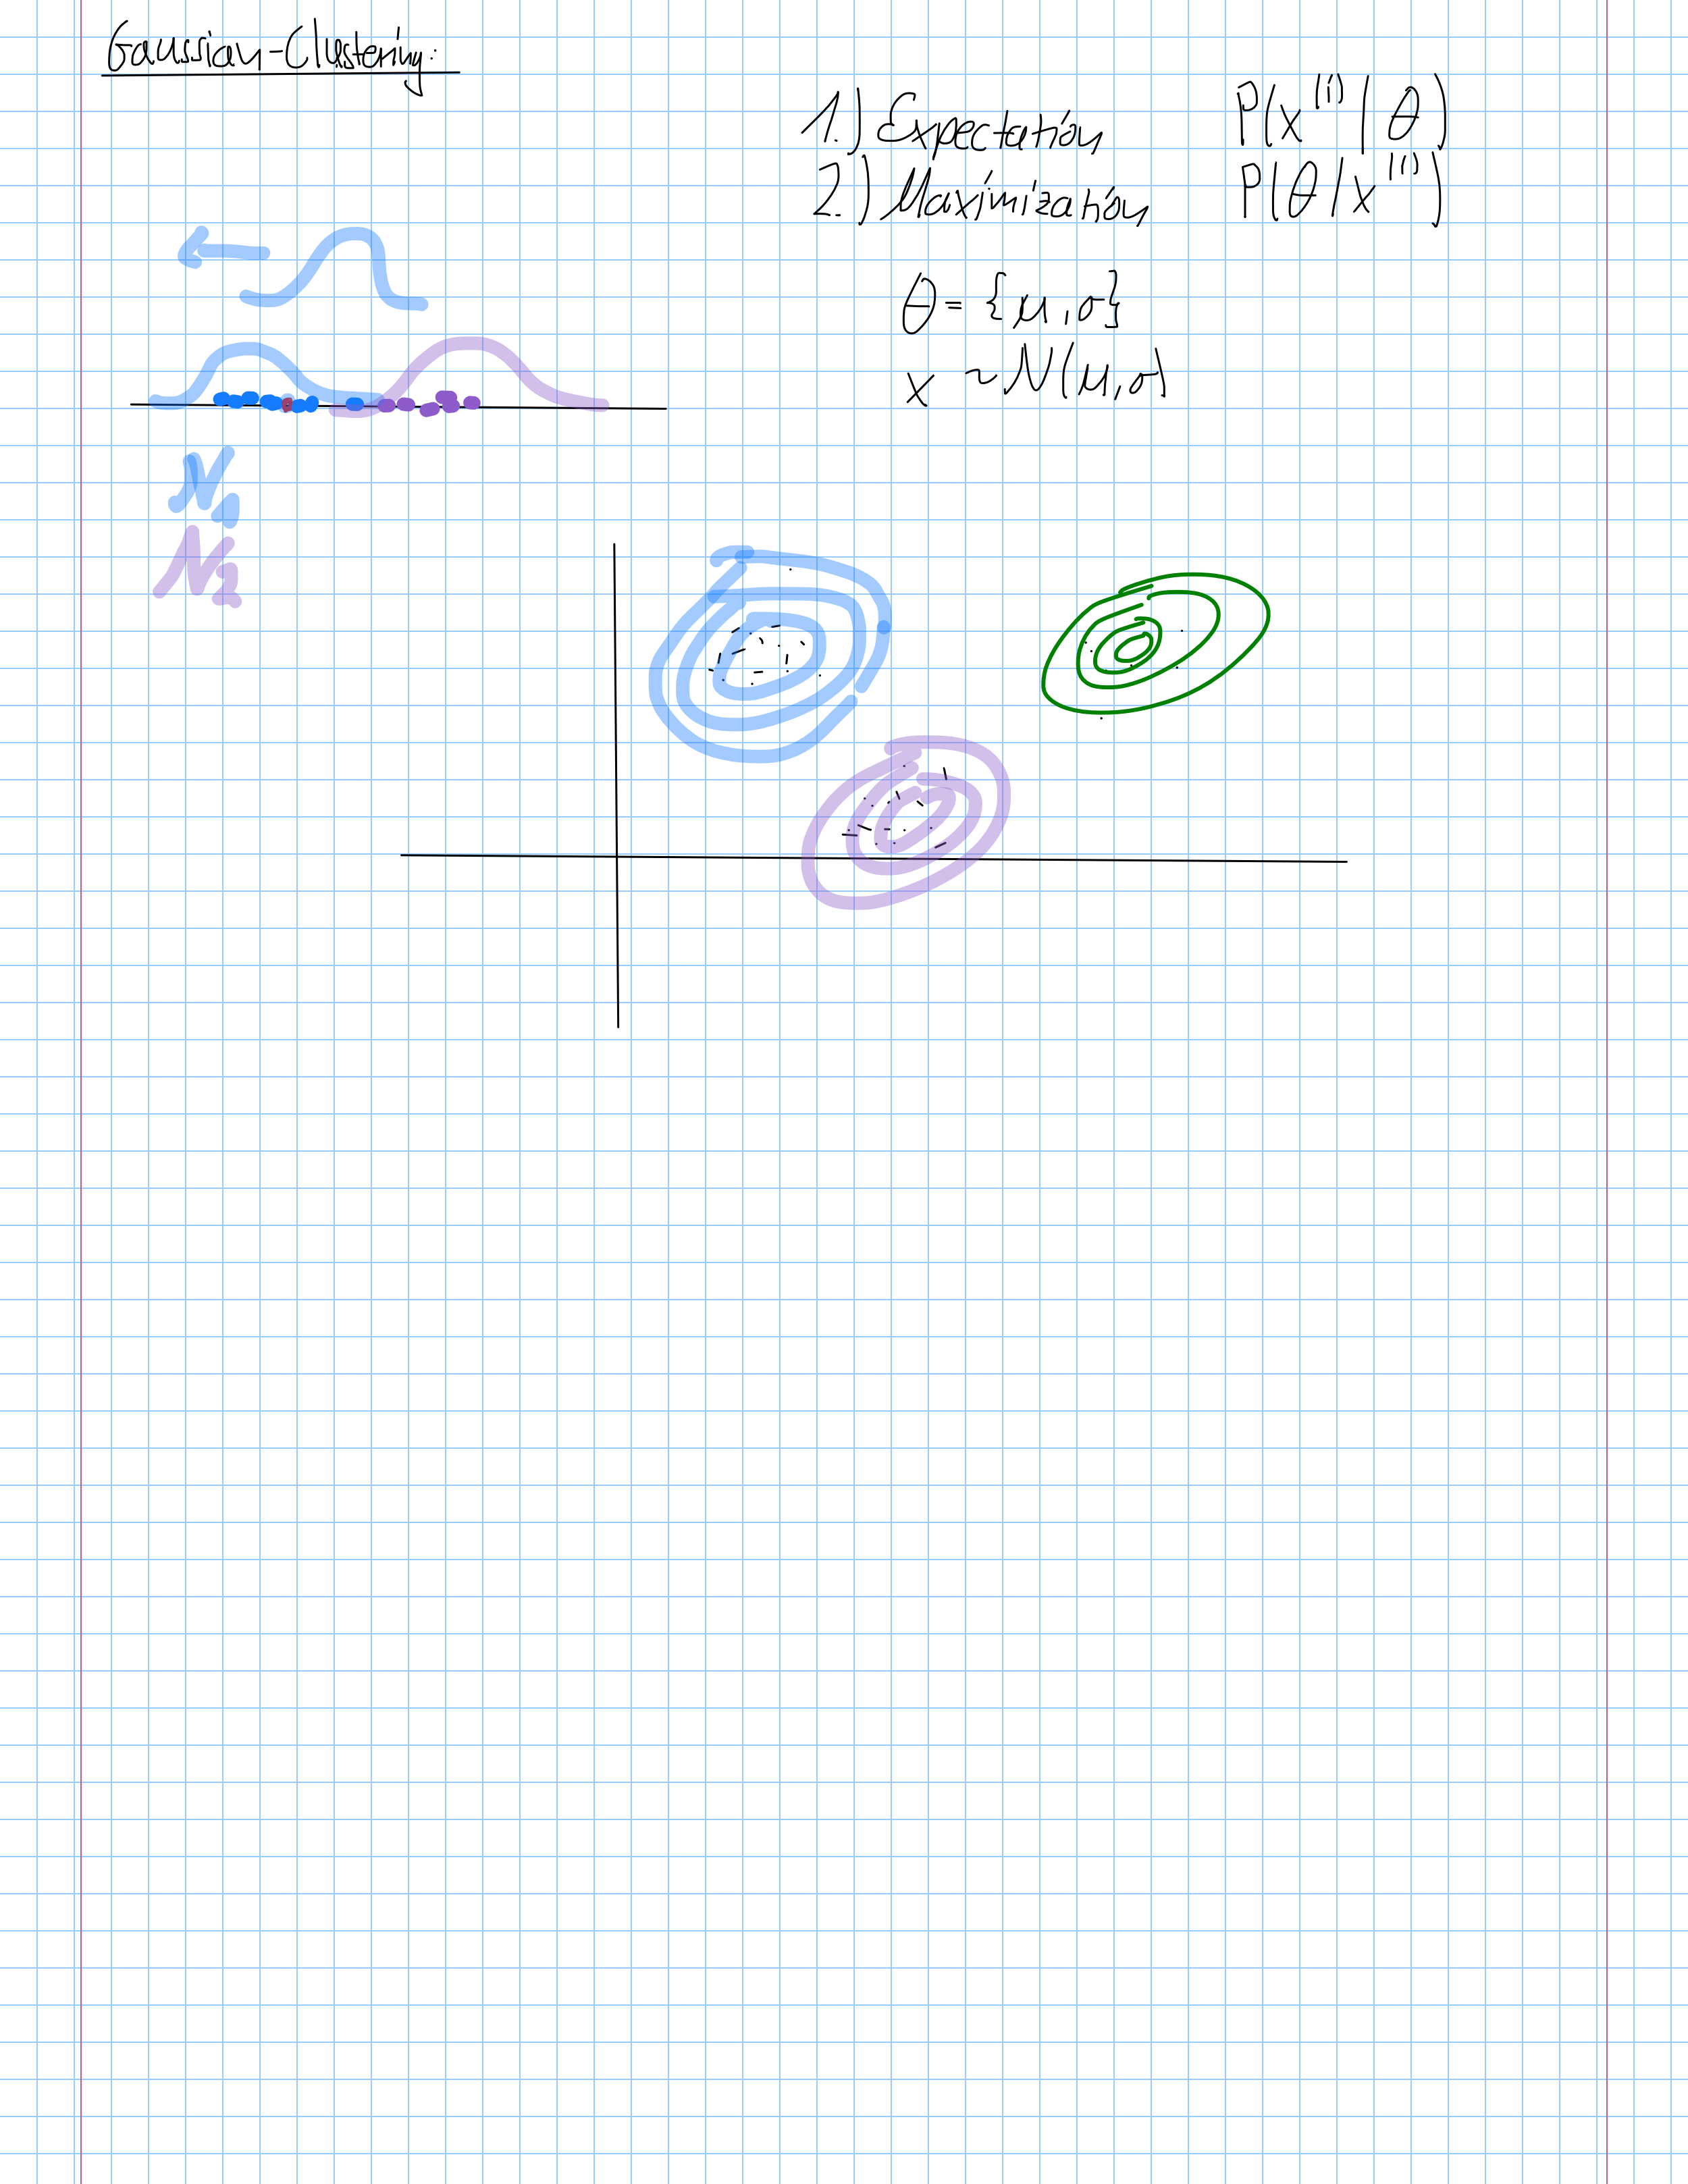 Gaussian-Clustering:
1.) Expectation P(x^(i) | θ)
2.) Maximization P(θ | x^(i))
θ = {μ, σ}
x ~ N(μ, σ)
N₁
N₂